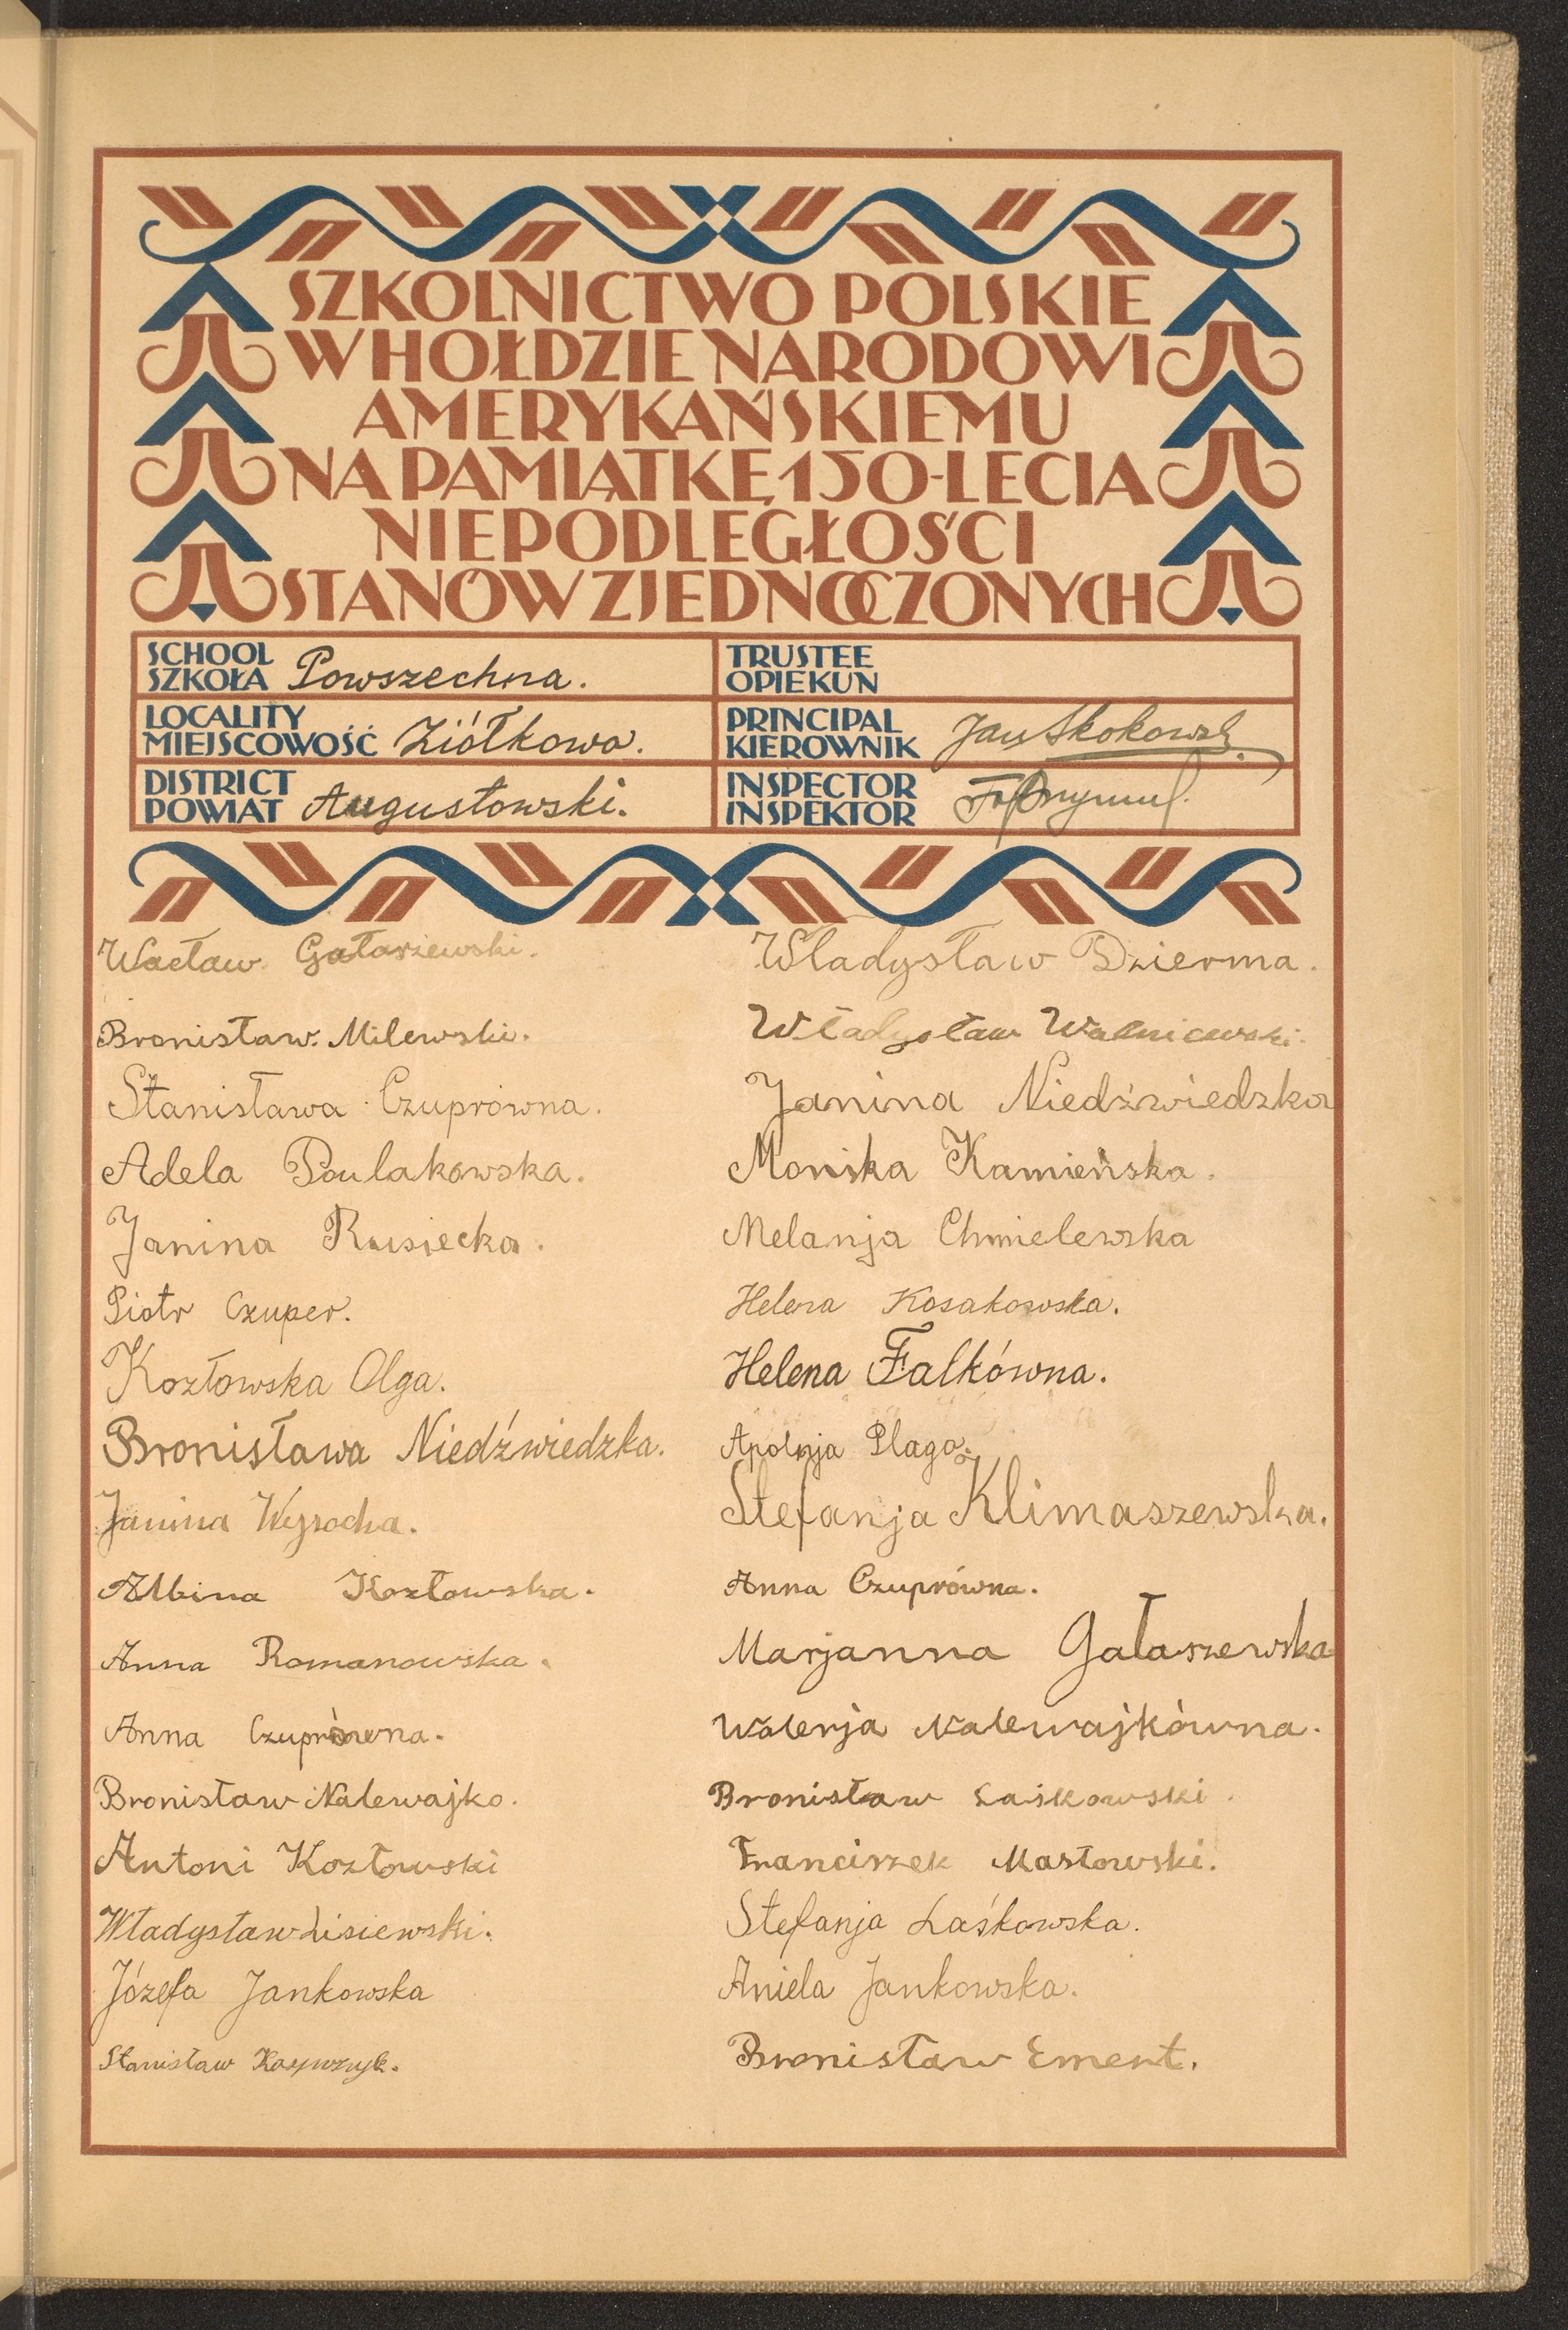 SZKOLNICTWO POLSKIE
W HOŁDZIE NARODOWI
AMERYKAŃSKIEMU
NA PAMIĄTKĘ 150-LECIA
NIEPODLEGŁOŚCI
STANÓW ZJEDNOCZONYCH
SCHOOL
SZKOŁA Powszechna.
TRUSTEE
OPIEKUN
LOCALITY
MIEJSCOWOŚĆ Ziółkowo.
PRINCIPAL
KIEROWNIK Jan Skokowski
DISTRICT
POWIAT Augustowski.
INSPECTOR
INSPEKTOR
Wacław Gałaszewski.
Bronisław. Milewski.
Stanisława Czuprówna.
Adela Poulakowska.
Janina Rusiecka.
Piotr Czuper.
Kozłowska Olga.
Bronisława Niedźwiedzka.
Janina Wysocka.
Albina Kozłowska.
Anna Romanowska.
Anna Czuprówna.
Bronisław Nalewajko.
Antoni Kozłowski
Władysław Lisiewski.
Józefa Jankowska
Stanisław
Władysław Dzierma.
Władysław
Janina Niedźwiedzka
Monika Kamieńska.
Melanja Chmielewska
Helena Kosakowska.
Helena Falkówna.
Apolnja Plaga.
Stefanja Klimaszewska.
Anna Czuprówna.
Marjanna Gałaszewska
Walerja Nalewajkówna.
Bronisław Laskowski.
Franciszek Masłowski.
Stefanja Laśkowska.
Aniela Jankowska.
Bronisław Ement.